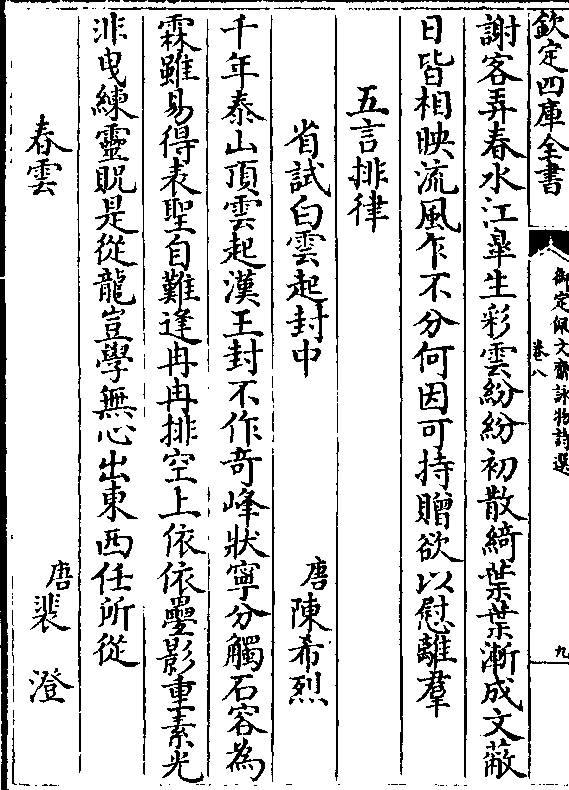 欽定四庫全書
御定佩文齋詠物詩選
卷八
九
謝客弄春水江臯生彩雲紛紛初散綺葉葉漸成文蔽
日皆相映流風乍不分何因可持贈欲以慰離羣
五言排律
省試白雲起封中
唐陳希烈
千年泰山頂雲起漢王封不作奇峰狀寧分觸石容為
霖雖易得表聖自難逢冉冉排空上依依疊影重素光
非曳練靈貺是從龍豈學無心出東西任所從
春雲
唐裴澄